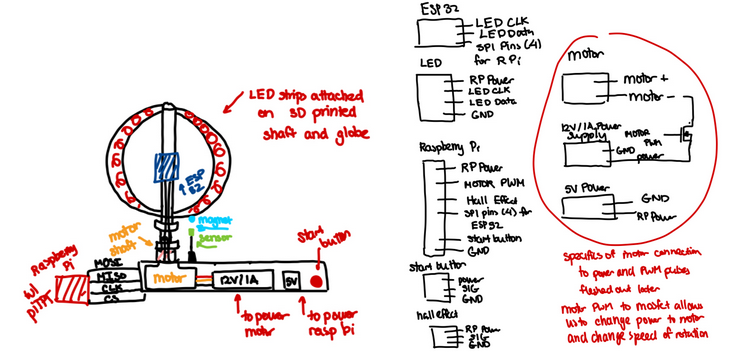 LED strips attached
on 3D printed
shaft and globe
ESP
32
magnet
sensor
motor
shaft
start
button
Raspberry
Pi
w/
piTFT
MOSI
MISO
CLK
CS
motor
12V/1A
5V
to power
motor
to power
rasp pi
ESP32
LED CLK
LED Data
SPI Pins (4)
for RPi
LED
RP Power
LED CLK
LED Data
GND
Raspberry Pi
RP Power
MOTOR PWM
Hall Effect
SPI pins (4) for
ESP32
start button
GND
start button
power
SIG
GND
hall effect
RP Power
SIG
GND
motor
motor +
motor -
12V/1A Power
Supply
MOTOR
PWM
GND
power
5V Power
GND
RP Power
specifics of motor connection
to power and PWM pulses
fleshed out later
motor PWM to mosfet allows
us to change power to motor
and change speed of rotation